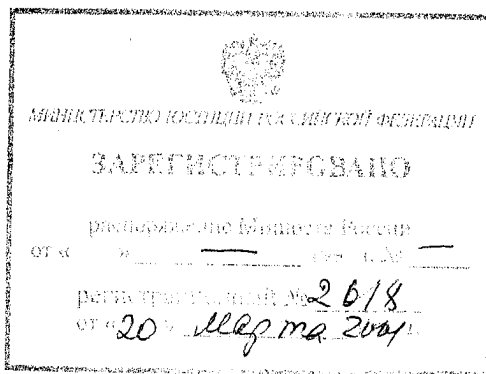 МИНИСТЕРСТВО ЮСТИЦИИ РОССИЙСКОЙ ФЕДЕРАЦИИ
ЗАРЕГИСТРИРОВАНО
распоряжение Минюста России
от « » — г. № —
регистрационный № 2618
от «20» марта 2001 г.